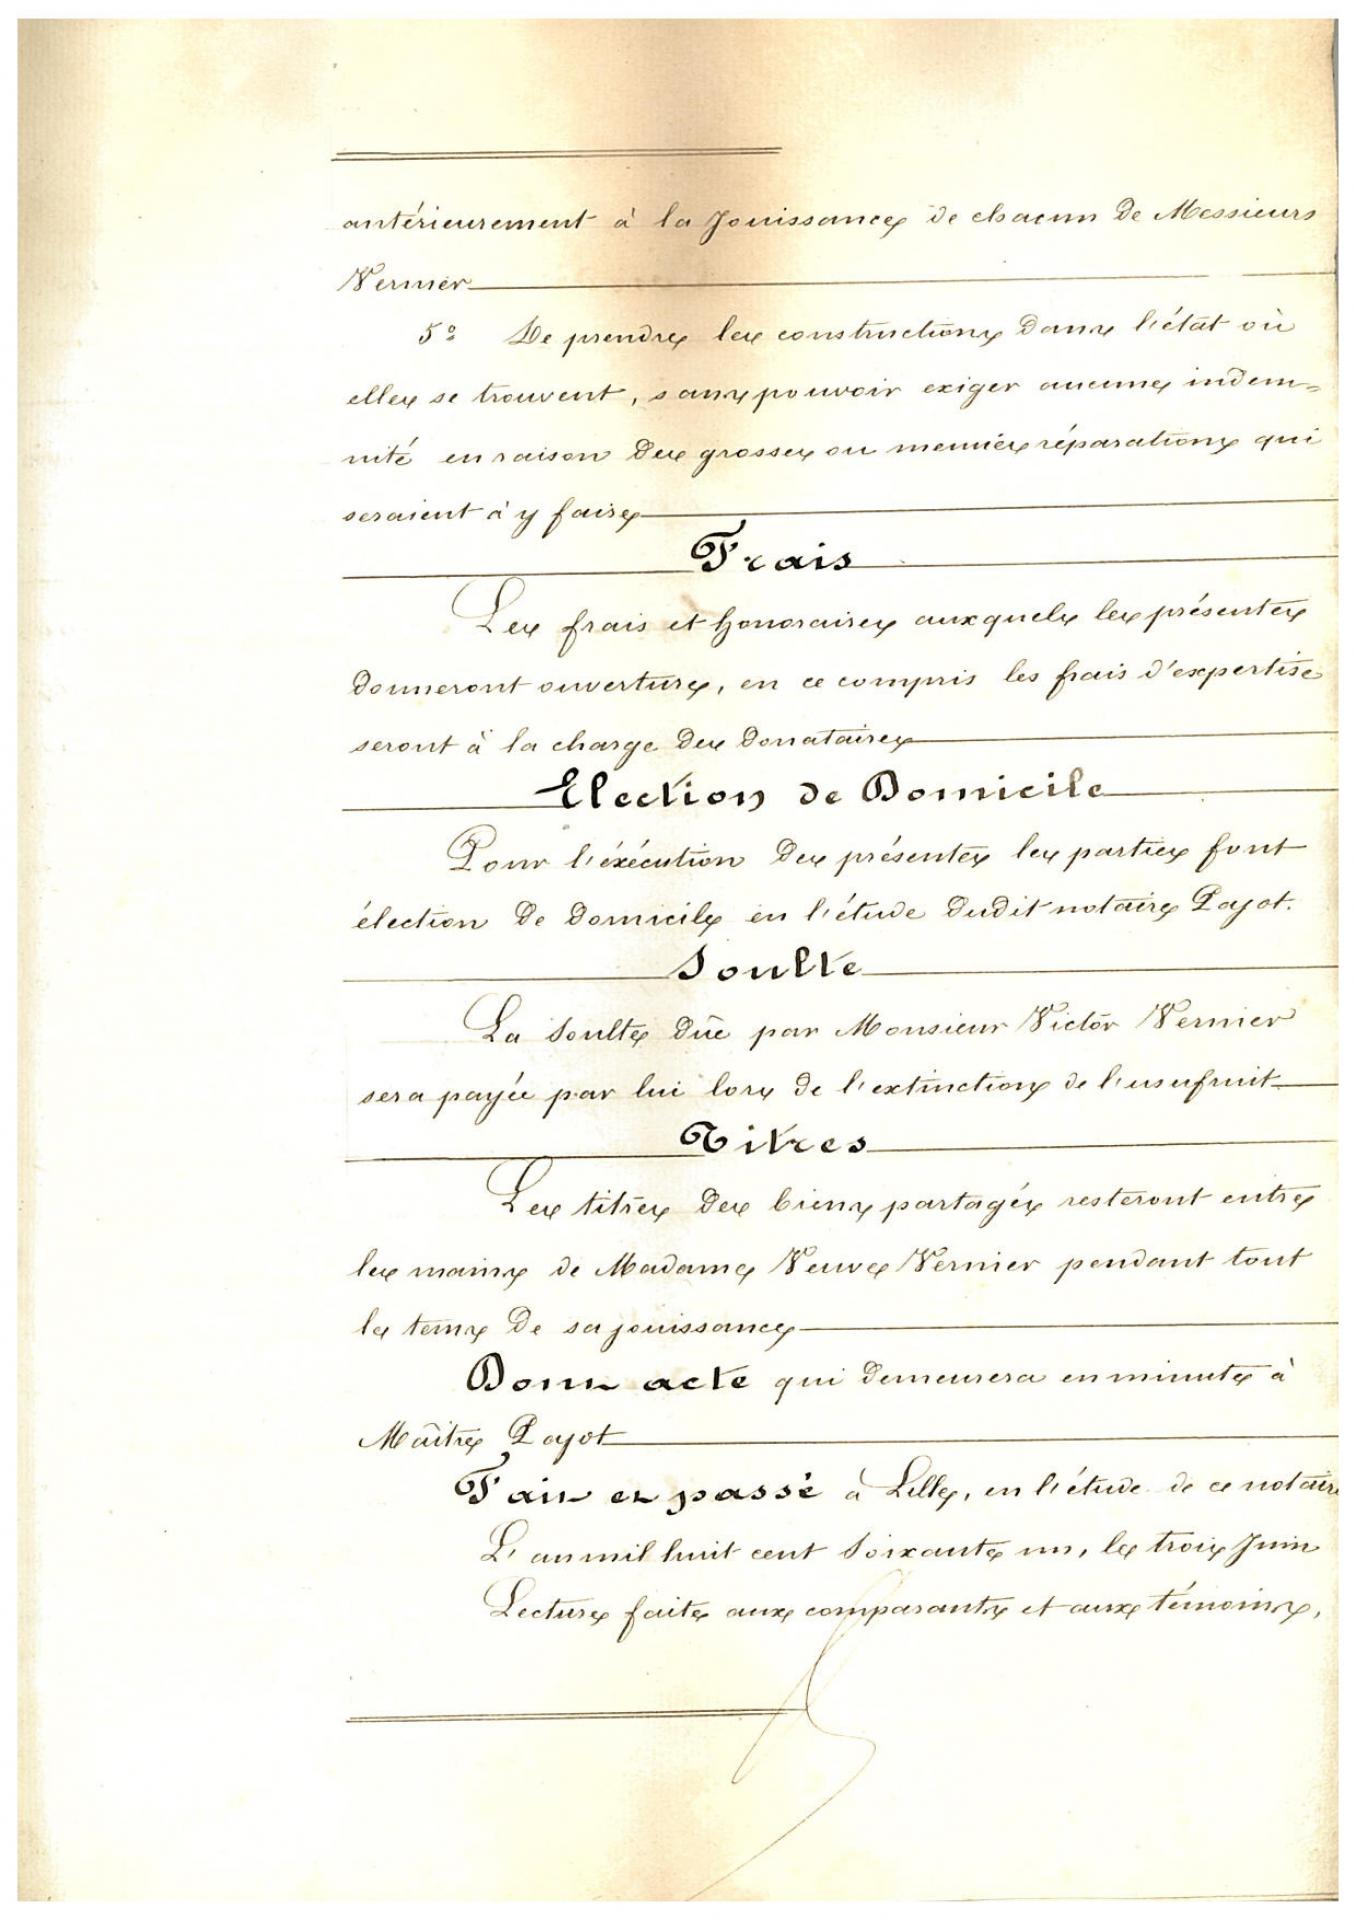 antérieurement à la Jouissance de chacun de Messieurs
Vernier
5° De prendre les constructions dans l'état où
elles se trouvent, sans pouvoir exiger aucune indem=
nité en raison des grosses ou menues réparations qui
seraient à y faire
Frais
Les frais et honoraires auxquels les présentes
donneront ouverture, en ce compris les frais d'expertise
seront à la charge des donataires
Election de Domicile
Pour l'éxécution des présentes les parties font
élection de domicile en l'étude dudit notaire Pajot.
Soulte
La Soulte dûe par Monsieur Victor Vernier
sera payée par lui lors de l'extinction de l'usufruit
Titres
Les titres des biens partagés resteront entre
les mains de Madame Veuve Vernier pendant tout
le tems de sa jouissance
Dont acte qui demeurera en minute à
Maître Pajot
Fait et passé à Lille, en l'étude de ce notaire
L'an mil huit cent soixante un, le trois Juin
Lecture faite aux comparants et aux témoins,